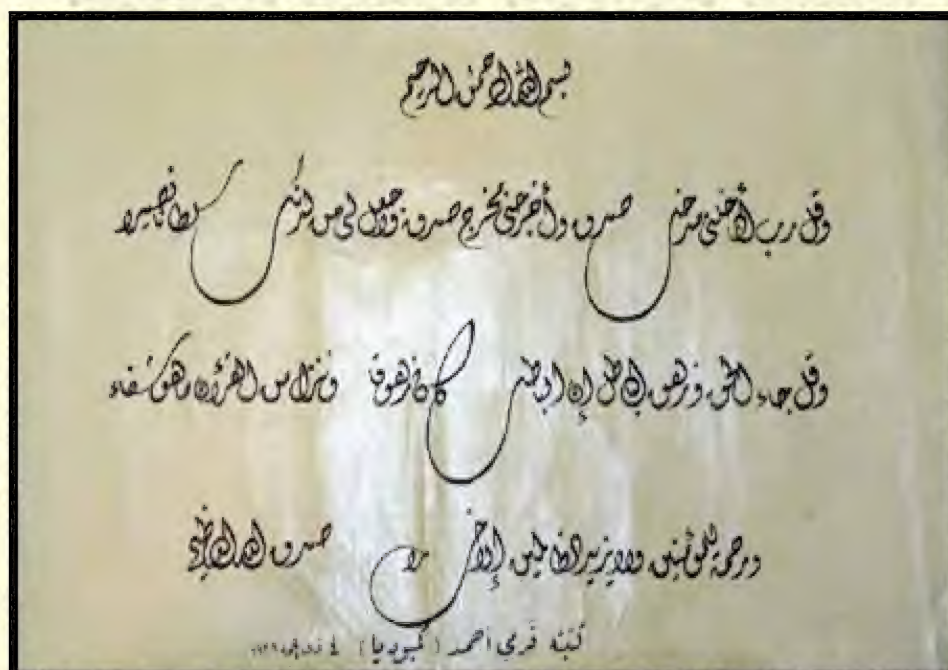 بسم الله الرحمن الرحيم
وقل رب أدخلني مدخل صدق وأخرجني مخرج صدق واجعل لي من لدنك سلطانا نصيرا
وقل جاء الحق وزهق الباطل إن الباطل كان زهوقا وننزل من القرءان ما هو شفاء
ورحمة للمؤمنين ولا يزيد الظالمين إلا خسارا صدق الله العظيم
كتبه قمري أحمد (كمبوديا) في